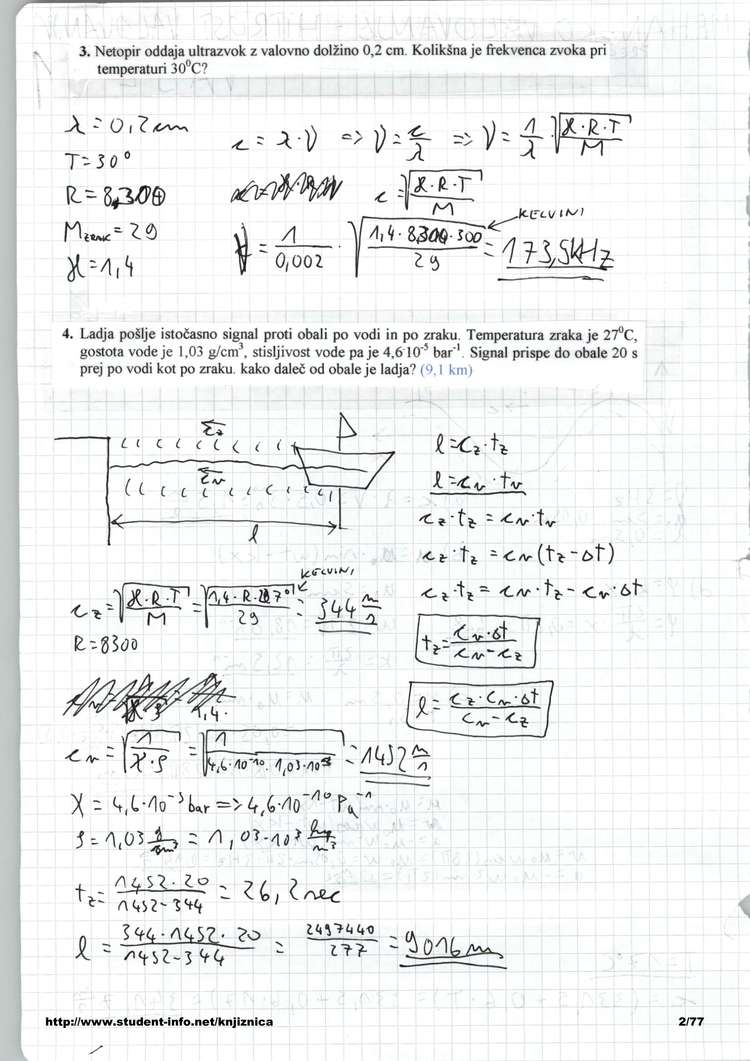 3. Netopir oddaja ultrazvok z valovno dolžino 0,2 cm. Kolikšna je frekvenca zvoka pri
temperaturi 30⁰C?
λ = 0,2 cm
c = λ·ν => ν = c/λ => ν = 1/λ √(ϰ·R·T/M)
T = 30°
R = 8300
c = √(ϰ·R·T/M)
M zrak = 29
ϰ = 1,4
KELVINI
ν = 1/0,002 · √(1,4·8300·300/29) = 173,5kHz
4. Ladja pošlje istočasno signal proti obali po vodi in po zraku. Temperatura zraka je 27⁰C,
gostota vode je 1,03 g/cm³, stisljivost vode pa je 4,6·10⁻⁵ bar⁻¹. Signal prispe do obale 20 s
prej po vodi kot po zraku. kako daleč od obale je ladja? (9,1 km)
c_z
c_v
l
l = c_z·t_z
l = c_v·t_v
c_z·t_z = c_v·t_v
c_z·t_z = c_v(t_z-Δt)
c_z·t_z = c_v·t_z - c_v·Δt
t_z = c_v·Δt/(c_v-c_z)
l = c_z·c_v·Δt/(c_v-c_z)
KELVINI
c_z = √(ϰ·R·T/M) = √(1,4·R·27°/29) = 344 m/s
R = 8300
1,4.
c_v = √(1/(χ·ρ)) = √(1/(4,6·10⁻¹⁰·1,03·10³)) = 1452 m/s
χ = 4,6·10⁻⁵ bar => 4,6·10⁻¹⁰ Pa⁻¹
ρ = 1,03 g/cm³ = 1,03·10³ kg/m³
t_z = 1452·20/(1452-344) = 26,2 sec
l = 344·1452·20/(1452-344) = 2497440/277 = 9016 m
http://www.student-info.net/knjiznica
2/77